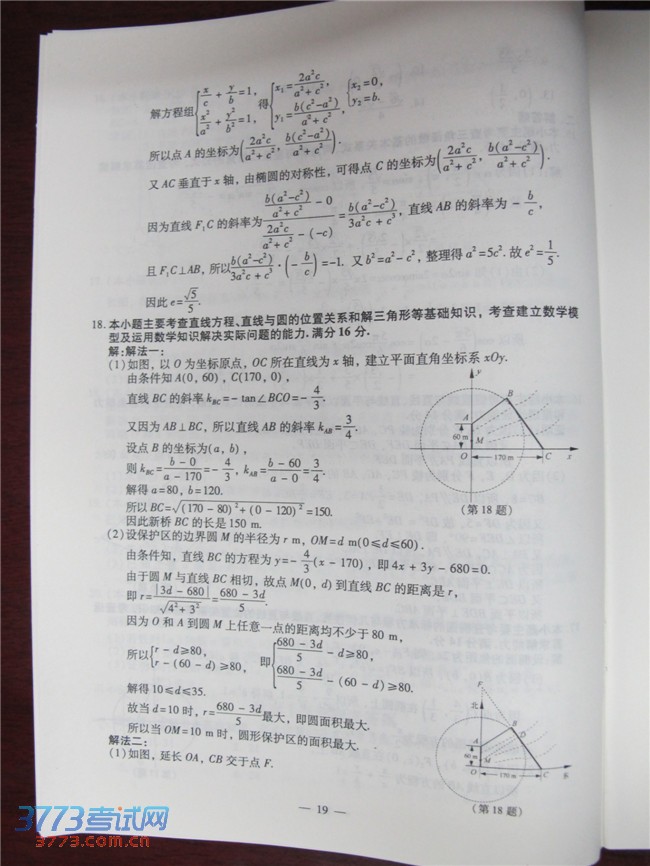 解方程组{x/c + y/b = 1, x²/a² + y²/b² = 1, 得{x₁ = 2a²c/(a²+c²), y₁ = b(c²-a²)/(a²+c²), {x₂=0, y₂=b.
所以点 A 的坐标为(2a²c/(a²+c²), b(c²-a²)/(a²+c²)).
又 AC 垂直于 x 轴，由椭圆的对称性，可得点 C 的坐标为(2a²c/(a²+c²), b(a²-c²)/(a²+c²)).
因为直线 F₁C 的斜率为 (b(a²-c²)/(a²+c²) - 0)/(2a²c/(a²+c²) - (-c)) = b(a²-c²)/(3a²c+c³), 直线 AB 的斜率为 - b/c,
且 F₁C⊥AB, 所以 b(a²-c²)/(3a²c+c³)·(- b/c)=-1. 又 b²=a²-c², 整理得 a²=5c². 故 e²=1/5.
因此 e=√5/5.
18. 本小题主要考查直线方程、直线与圆的位置关系和解三角形等基础知识，考查建立数学模
型及运用数学知识解决实际问题的能力. 满分 16 分.
解: 解法一：
(1) 如图，以 O 为坐标原点，OC 所在直线为 x 轴，建立平面直角坐标系 xOy.
由条件知 A(0, 60), C(170, 0),
直线 BC 的斜率 k_BC=- tan∠BCO=- 4/3.
又因为 AB⊥BC, 所以直线 AB 的斜率 k_AB= 3/4.
设点 B 的坐标为(a, b),
则 k_BC= (b-0)/(a-170) =- 4/3, k_AB= (b-60)/(a-0) = 3/4.
解得 a=80, b=120.
所以 BC=√((170-80)²+(0-120)²)=150.
因此新桥 BC 的长是 150 m.
y
B
A
60 m
M
O
170 m
C
x
(第 18 题)
(2) 设保护区的边界圆 M 的半径为 r m, OM=d m(0≤d≤60).
由条件知，直线 BC 的方程为 y=- 4/3(x-170), 即 4x+3y-680=0.
由于圆 M 与直线 BC 相切，故点 M(0, d) 到直线 BC 的距离是 r,
即 r= |3d-680|/√(4²+3²) = (680-3d)/5.
因为 O 和 A 到圆 M 上任意一点的距离均不少于 80 m,
所以{r-d≥80, r-(60-d)≥80, 即{(680-3d)/5 - d≥80, (680-3d)/5 - (60-d)≥80.
解得 10≤d≤35.
故当 d=10 时，r= (680-3d)/5 最大，即圆面积最大.
所以当 OM=10 m 时，圆形保护区的面积最大.
解法二：
(1) 如图，延长 OA, CB 交于点 F.
F
北
B
A
D
60 m
M
O
170 m
C
东
(第 18 题)
— 19 —
3773考试网
www.3773.com.cn